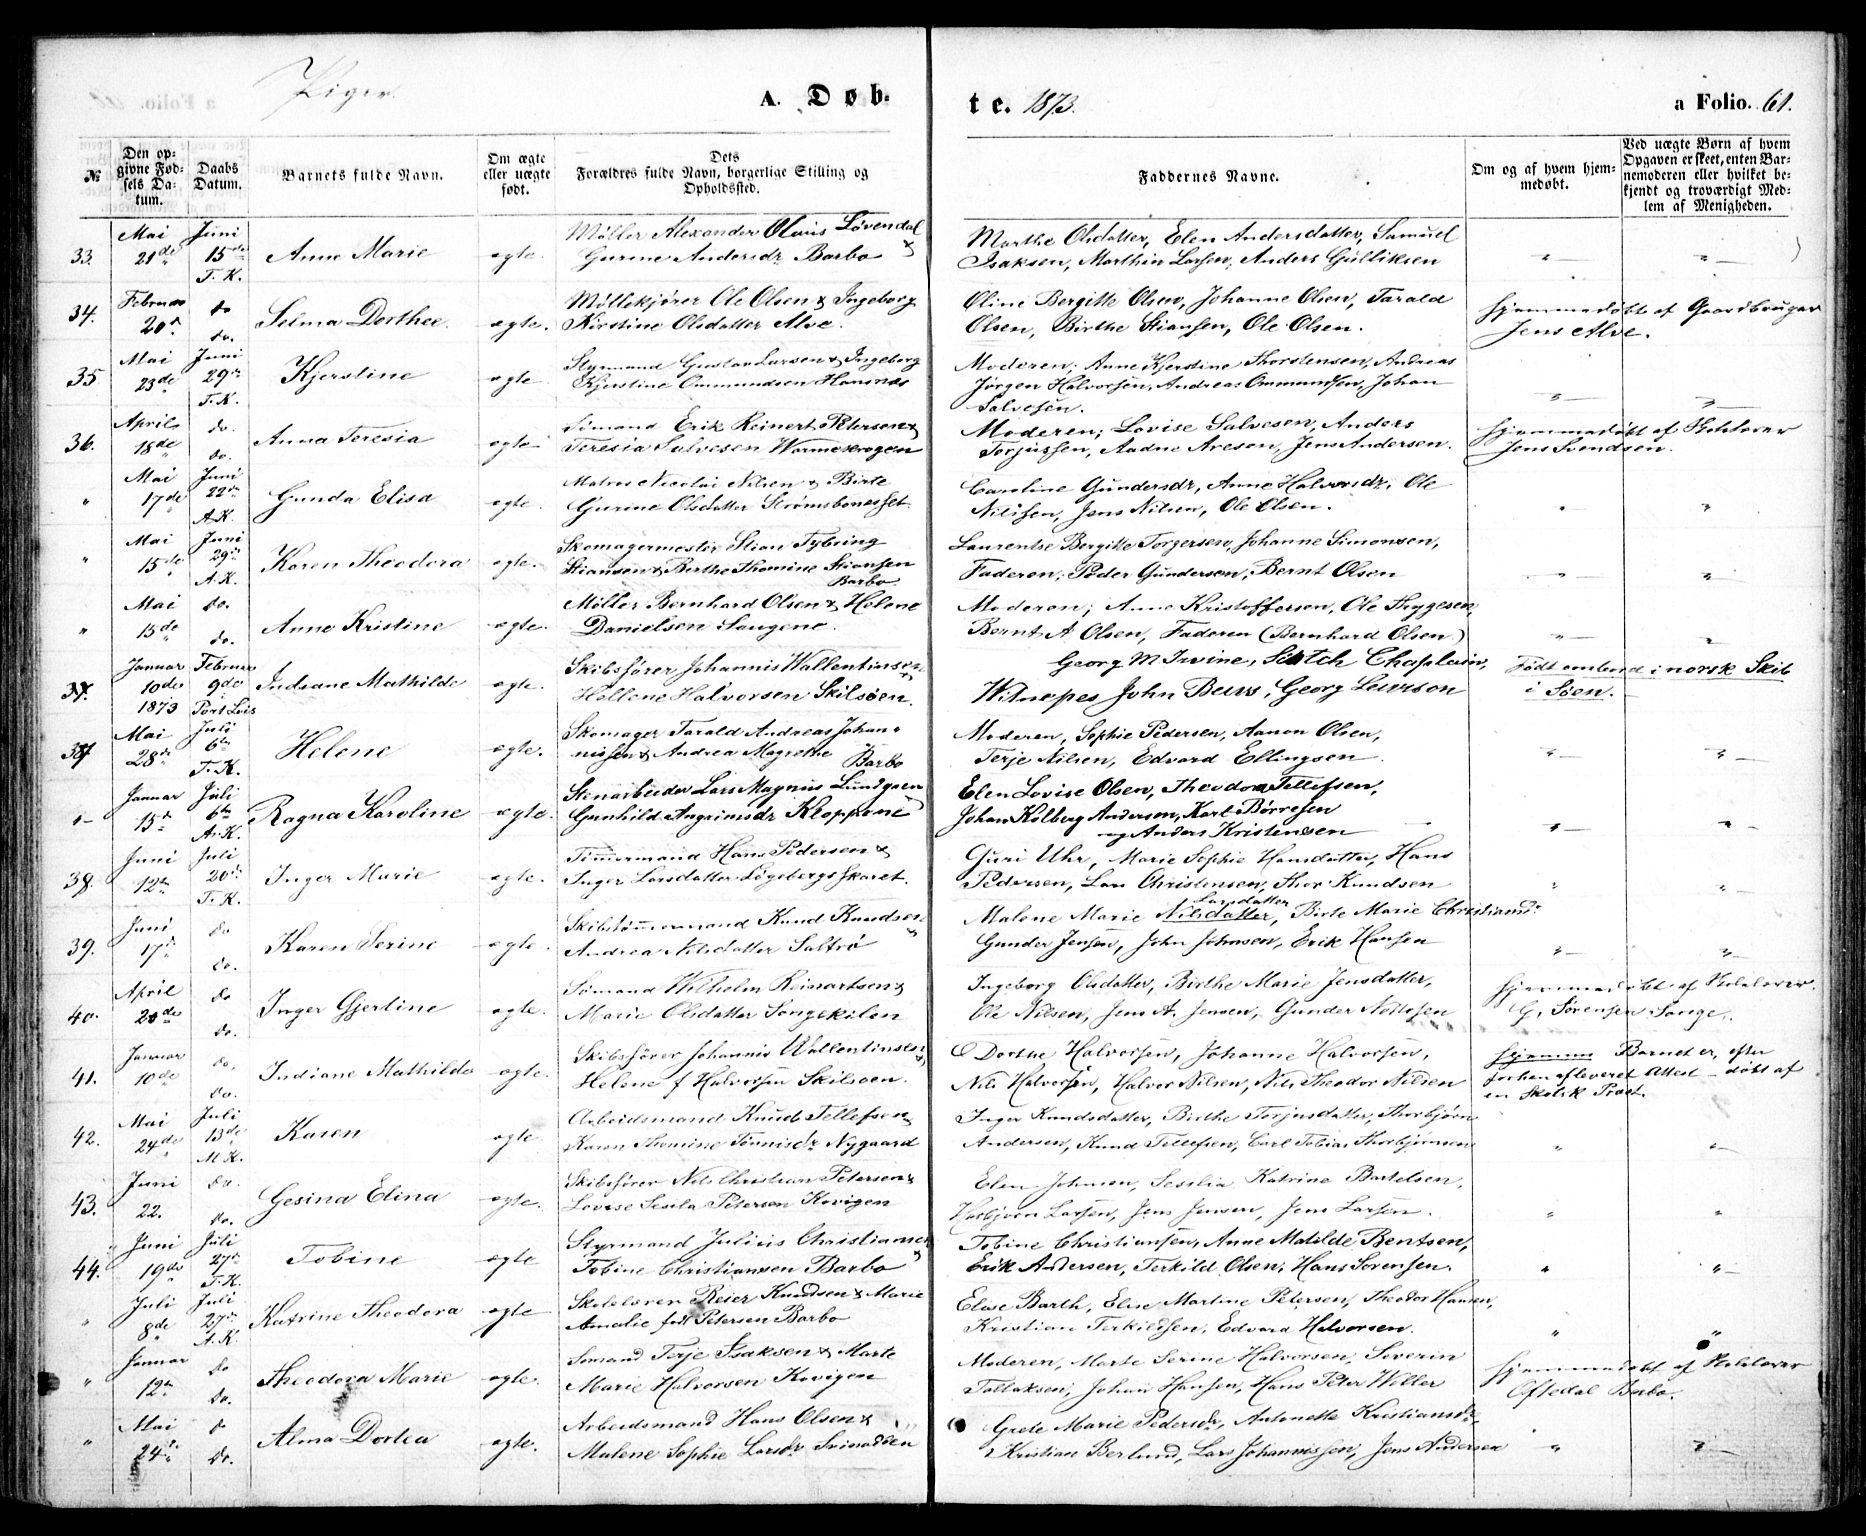 Piger.
A. Døb-
te. 1873.
a Folio. 61.
№
Den op-
givne Fød-
sels Da-
tum.
Daabs
Datum.
Barnets fulde Navn.
Om ægte
eller uægte
født.
Dets
Forældres fulde Navn, borgerlige Stilling og
Opholdssted.
Faddernes Navne.
Om og af hvem hjem-
medøbt.
Ved uægte Børn af hvem
Opgaven er skeet, enten Bar-
nemoderen eller hvilket be-
kjendt og troværdigt Med-
lem af Menigheden.
Mai Juni Møller Alexander Olaus Løvendal Marthe Olsdatter, Elen Andersdatter, Samuel
33. 21de 15de Anne Marie ægte. Gurine Andersdr Barbo & Isaksen, Marthin Larsen, Anders Gulliksen " "
T. K.
Februar do Møllekjører Ole Olsen & Ingeborg Oline Bergitte Olsen, Johanne Olsen, Tarald hjemmedøbt af Gaardbruger
34. 20de do. Selma Dorthee ægte. Kirstine Olsdatter Alve. Olsen, Birthe Stiansen, Ole Olsen. Jens Alve.
Mai Juni Styrmand Gustav Larsen & Ingeborg Moderen, Anne Kjerstine Thorstensen, Andreas
35. 23de 29de Kjerstine ægte. Kjerstine Ommundsen Hansnæs Jørgen Halvorsen, Andreas Ommundsen, Johan
T. K. Salvesen. " "
April do. Sömand Erik Reinert Petersen & Moderen; Lovise Salvesen, Anders hjemmedøbt af Skolelærer
36. 18de do. Anna Teresia ægte Teresia Salvesen Warmekrogen Torjussen, Aadne Aresen, Jens Andersen. Jens Svendsen.
Mai Juni Matros Nicolai Nilsen & Birte Caroline Gundersdr, Anne Halvorsdr, Ole
" 17de 22de Gunda Elisa ægte. Gurine Olsdatter Strømsbonesset. Nilsen, Jens Nilsen, Ole Olsen. " "
A.K.
Mai Juni Skomagermester Stian Tybring Laurentse Bergitte Torgersen, Johanne Simonsen,
" 15de 29de Karen Theodora ægte. Stiansen & Birthe Thomine Stiansen Faderen, Peder Gundersen, Bernt Olsen " "
A.K. Barbo
Mai do. Møller Bernhard Olsen & Helene Moderen; Anne Kristoffersen, Ole Thygesen,
" 15de do. Anne Kristine ægte. Danielsen Songene. Bernt A Olsen, Faderen (Bernhard Olsen) " "
Januar Februar Skibsfører Johannis Wallentinsen & Georg M Irvine, Scotch Chaplain, Født ombord i norsk Skib
37. 10de 9de Indiane Mathilde ægte. Hellene Halvorsen Skilsøen. Witnesses John Burs, Georg Leurson i Søen.
1873 Port Lois
Mai Juli Skomager Tarald Andreas Johan- Moderen, Sophie Pedersen, Aanon Olsen,
37 28de 6te Helene ægte. nissen & Andrea Magrethe Barbo Terje Nilsen, Edvard Ellingsen " "
T. K.
Januar Juli Stenarbeider Lars Magnus Lundgren Elen Lovise Olsen, Theodora Tellefsen,
" 15de 6te Ragna Karoline ægte. Gunhild Angrimsdr Kloppene Johan Kolberg Andersen, Karl Børresen
A.K. og Anders Kristensen " "
Juni Juli Timmermand Hans Pedersen & Guri Uhr, Marie Sophie Hansdatter, Hans
38. 12te 20de Inger Marie ægte. Inger Larsdatter Løgebergsskaret. Pedersen, Lars Christensen, Thor Knudsen " "
T. K.
Juni do Skibstømmermand Knud Knudsen & Malene Marie Nilsdatter Larsdatter, Birte Marie Christiansdr
39. 17de do. Karen Serine ægte. Andrea Nilsdatter Saltrø Gunder Jensen, John Johnsen, Erik Hansen " "
April do Sømand Wilhelm Reinartsen & Ingeborg Olsdatter, Birthe Marie Jensdatter, hjemmedøbt af Skolelærer
40. 20de do. Inger Gjertine ægte. Marie Olsdatter Songekilen Ole Nilsen, Jens A. Jensen, Gunder Nottosen G. Sörensen Songe.
Januar do. Skibsfører Johannis Wallentinsen & Dorthe Halvorsen, Johanne Halvorsen, hjemme Barnet er, efter
41. 10de do. Indiane Mathilde ægte. Helene f Halvorsen Skilsøen. Nils Halvorsen, Halvor Nilsen, Nils Theodor Nilsen forhen afleveret Attest - døbt af
en Skotsk Præst.
Mai Juli Arbeidsmand Knud Tellefsen & Inger Knudsdatter, Birthe Torjusdatter, Thorbjørn
42. 24de 13de Karen ægte. Karen Thomine Tönnisdr Nygaard Andersen, Knud Tellefsen, Carl Tobias Thorbjørnsen " "
M K.
Juni do. Skibsfører Nils Christian Petersen & Elen Johnsen, Sesilia Katrine Bartelsen,
43. 22. do. Gesina Elina ægte. Lovise Sesila Petersen Kovigen Hasbjørn Larsen, Jens Jensen, Jens Larsen. " "
Juni Juli Styrmand Julius Christiansen & Tobine Christiansen, Anne Matilde Bentsen,
44. 19de 27de Tobine ægte Tobine Christiansen Barbo Erik Andersen, Terkild Olsen, Hans Sørensen. " "
T.K.
Juli Juli Skolelærer Reier Knudsen & Marie Elise Barth, Elise Martine Petersen, Theodor Hansen,
" 8de 27de Katrine Theodora ægte Amalie født Petersen Barbo Kristian Terkildsen, Edvard Halvorsen. " "
A.K.
Januar do Sømand Terje Isaksen & Marte Moderen, Marte Serine Halvorsen, Severin hjemmedøbt af Skolelærer
" 12te do. Theodora Marie ægte. Marie Halvorsen Kovigen Tallaksen, Johan Hansen, Hans Peter Woller Oftedal Barbo.
Mai do Arbeidsmand Hans Olsen & Grete Marie Pedersdr, Antonette Kristiansdr
" 24de do. Alma Dortea ægte. Malene Sophie Larsdr Kristian Berlund, Lars Johannissen, Jens Andersen " "